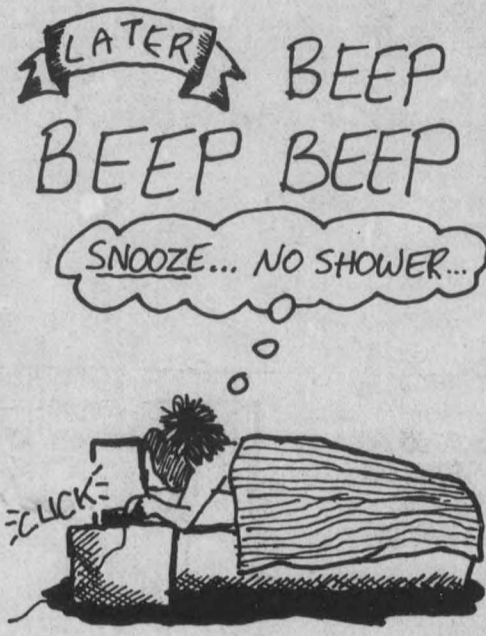 LATER
BEEP
BEEP BEEP
SNOOZE... NO SHOWER...
CLICK